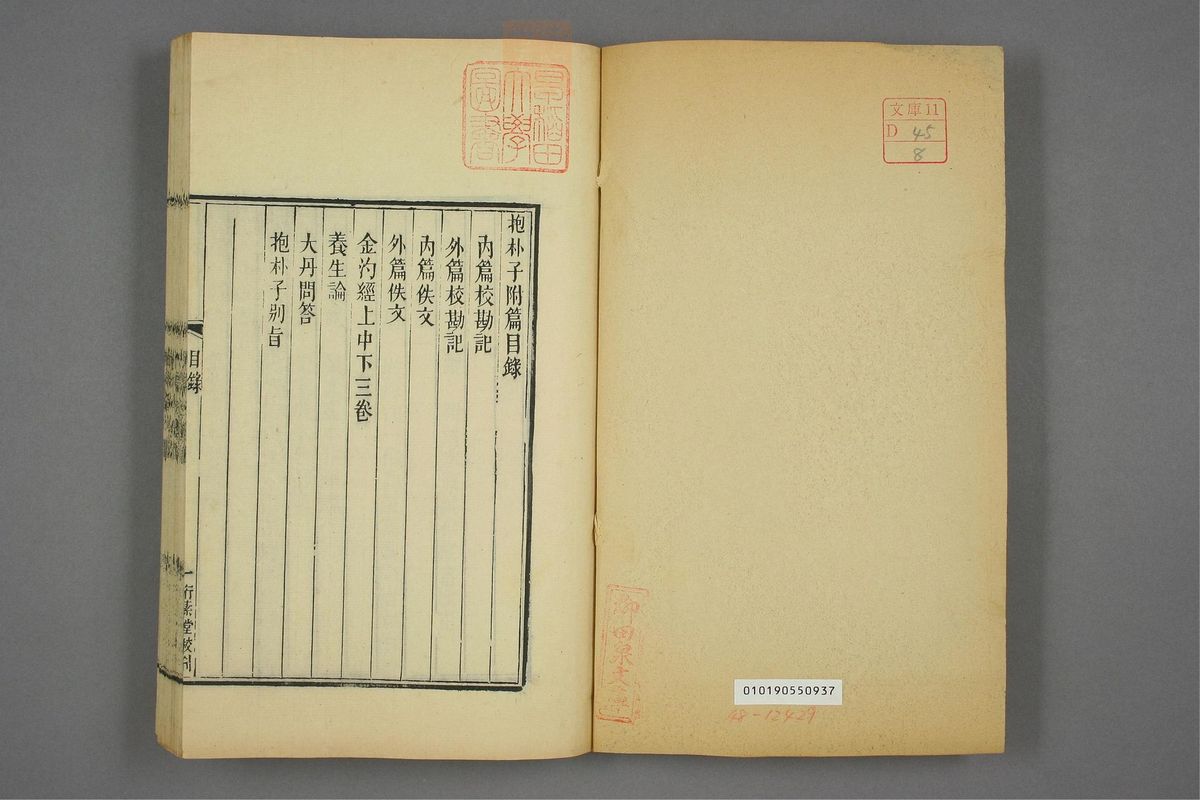 文庫11
D 45
8
柳田泉文庫
010190550937
48-12429
早稲田
大學
圖書
抱朴子附篇目錄
內篇校勘記
外篇校勘記
內篇佚文
外篇佚文
金汋經上中下三卷
養生論
大丹問答
抱朴子別旨
目錄
一
行素堂校刊